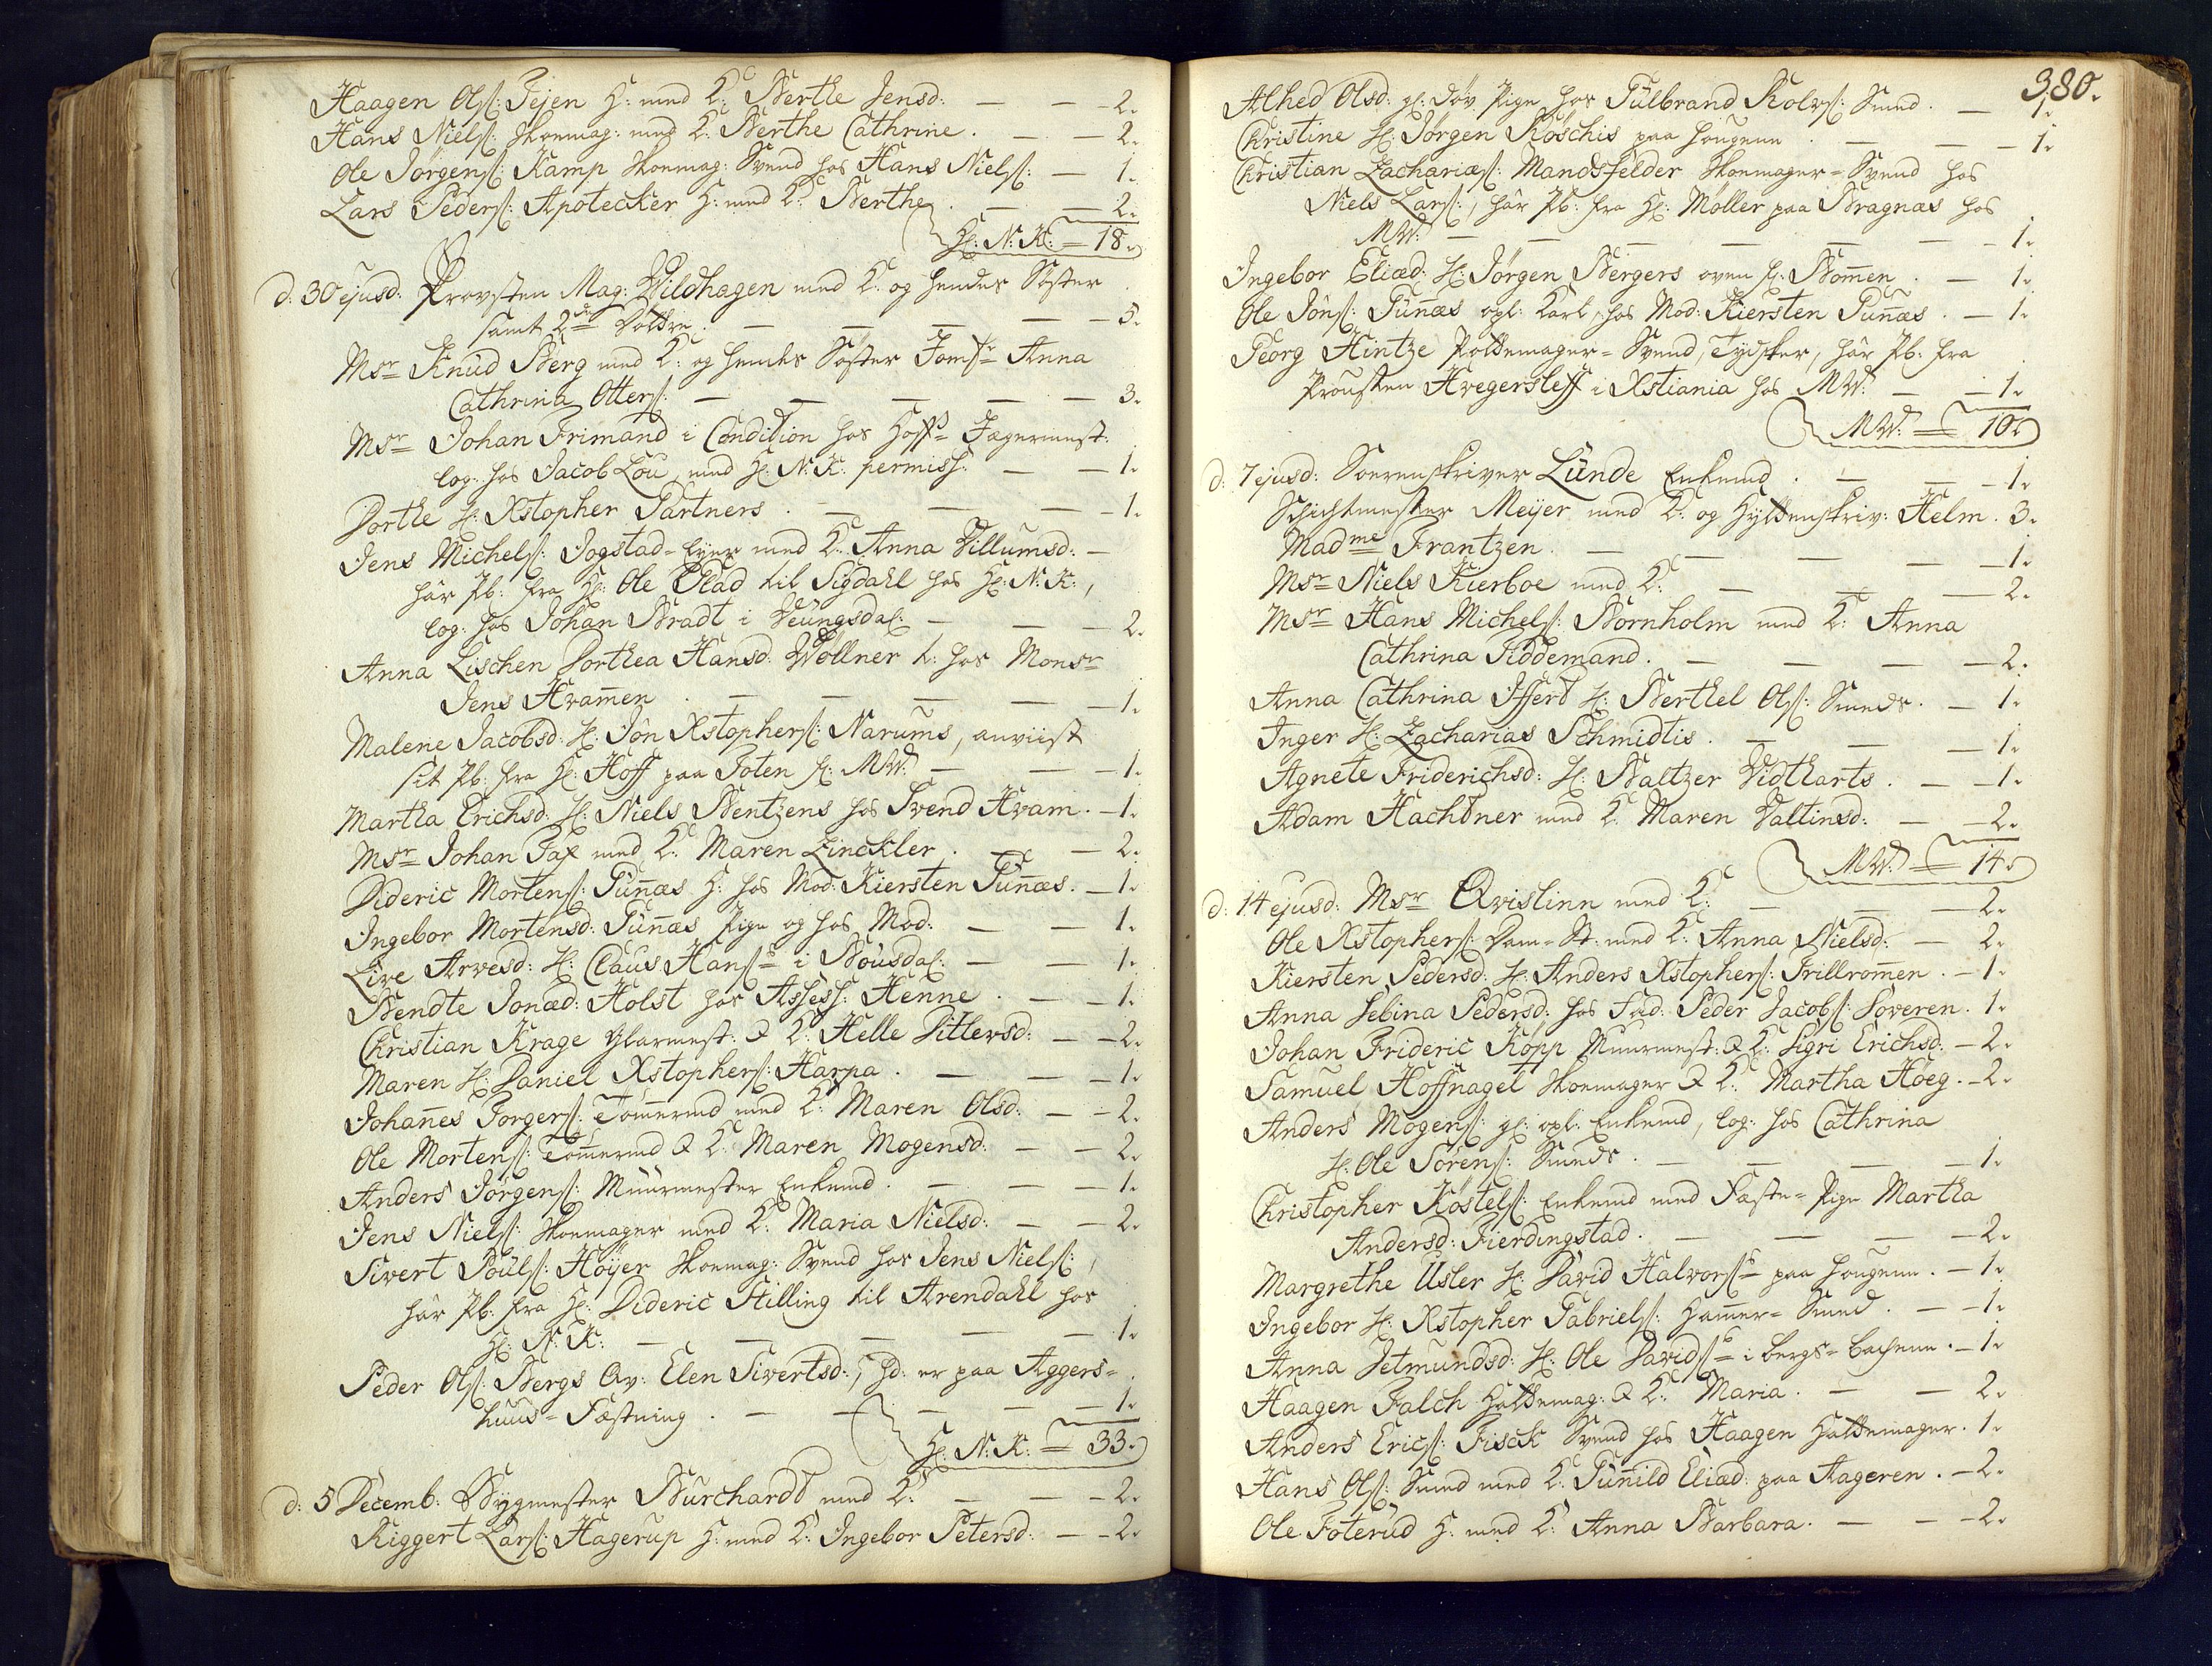 Haagen Ols: Jejen H: med K: Berthe Jensd: — — 2.
Hans Niels: Skoemag: med K: Berthe Cathrine. — — 2.
Ole Jørgens: Kamp Skoemag: Svend hos Hans Niels: — 1.
Lars Peders: Apotecker H: med K: Berthe. — — 2.
Hr: N: K: = 18.
d: 30 ejusd: Provsten Mag: Wildhagen med K: og hendes Søster
samt 2de Døttre. — — — — 5.
Msr Knud Berg med K: og hendes Søster Jomfr Anna
Cathrina Otters: — — — — 3.
Msr Johan Frimand i Condition hos Hoff= Jægermest:
log: hos Jacob Lou, med Hr: N: K: permiss: — — 1.
Dorthe H: Xstopher Gartners. — — — 1.
Jens Michels: Jogstad= Ejer med K: Anna Villumsd: —
har Pb: fra Hr: Ole Blad til Sigdahl hos Hr: N: K:,
log: hos Johan Bradt i Veungsdal: — — — 2.
Anna Lischen Dorthea Hansd: Wöllner t: hos Monsr
Jens Kramen. — — — — 1.
Malene Jacobsd: H: Jön Xstophers: Narums, anviist
sit Pb: fra Hr: Hoff paa Toten f: MW: — — 1.
Martha Erichsd: H: Niels Bentzens hos Svend Hvam. — 1.
Msr Johan Fax med K: Maren Zinckler. — — 2.
Dideric Mortens: Gunæs H: hos Mod: Kiersten Gunæs. — 1.
Ingebor Mortensd: Gunæs Pige og hos Mod: — — 1.
Live Arvesd: H: Claus Hans: i Bousdal: — — 1.
Bendte Jonæd: Holst hos Assess: Henne. — — 1.
Christian Krage Glarmest: & K: Helle Ditlevsd: — — 2.
Maren H: Daniel Xstophers: Harpa. — — — 1.
Johanes Torgers: Tømermd med K: Maren Olsd: — — 2.
Ole Mortens: Tømermd & K: Maren Mogensd: — — 2.
Anders Jørgens: Muurmester Enkemd. — — — 1.
Jens Niels: Skoemager med K: Maria Nielsd: — — 2.
Sivert Pouls: Høyer Skoemag: Svend hos Jens Niels:,
har Pb: fra Hr: Dideric Stilling til Arendahl hos
Hr: N: K: — — — — — 1.
Peder Ols: Bergs Qv: Elen Sivertsd:, Hd: er paa Aggers=
huus= Fæstning. — — — — 1.
Hr: N: K: = 33.
d: 5 Decemb: Bygmester Burchardt med K: — — — 2.
Riggert Lars: Hagerup H: med K: Ingebor Petersd: — — 2.
380.
Alhed Olsd: gl: Døv Pige hos Gulbrand Rolvs: Smed. — 1.
Christine H: Jørgen Röschis paa Hougene. — — — 1.
Christian Zachariæs: Mandsfelder Skoemager= Svend hos
Niels Lars:, har Pb: fra Hr: Møller paa Bragnæs hos
MW: — — — — — 1.
Ingebor Eliæd: H: Jørgen Bergers oven f: Bomen. — 1.
Ole Jöns: Gunæs opl: Karl, hos Mod: Kiersten Gunæs. — 1.
Georg Hintze Pottemager= Svend, Tydsker, har Pb: fra
Prousten Hvegersleff i Xstiania hos MW: — — 1.
MW: = 10.
d: 7 ejusd: Sorenskriver Lunde Enkemd. — — — 1.
Schichtmester Meyer med K: og Hyttenskriv: Helm. 3.
Madme Frantzen. — — — — 1.
Msr Niels Kierboe med K: — — — 2.
Msr Hans Michels: Bornholm med K: Anna
Cathrina Tiddemand. — — — — 2.
Anna Cathrina Ifferd H: Berthel Ols: Smeds. — 1.
Inger H: Zacharias Schmidtis. — — — 1.
Agnete Friderichsd: H: Baltzer Vidtharts. — — 1.
Adam Hachtner med K: Maren Valtinsd: — — 2.
MW: = 14.
d: 14 ejusd: Msr Qvislinn med K: — — — 2.
Ole Xstophers: Dam= St: med K: Anna Nielsd: — 2.
Kiersten Pedersd: H: Anders Xstophers: Trillromen. — 1.
Anna Sebina Pedersd: hos Fad: Peder Jacobs: Soveren. 1.
Johan Frideric Köpp Muurmest: & K: Sigri Erichsd: — 2.
Samuel Hoffnagel Skoemager & K: Martha Høeg. — 2.
Anders Mogens: gl: opl: Enkemd, log: hos Cathrina
H: Ole Sörens: Smeds. — — — 1.
Christopher Köstels: Enkemd med Fæste= Pige Martha
Andersd: Fierdingstad. — — — — 2.
Margrethe Usler H: David Halvors: paa Hougene. — 1.
Ingebor H: Xstopher Gabriels: Hamer= Smed. — — 1.
Anna Jetmundsd: H: Ole Davids: i Bergs= Bachene. — 1.
Haagen Falch Hattemag: & K: Maria. — — 2.
Anders Erics: Fisck Svend hos Haagen Hattemager. 1.
Hans Ols: Smed med K: Gunild Eliæd: paa Aageren. — 2.
Ole Foterud H: med K: Anna Barbara. — — 2.